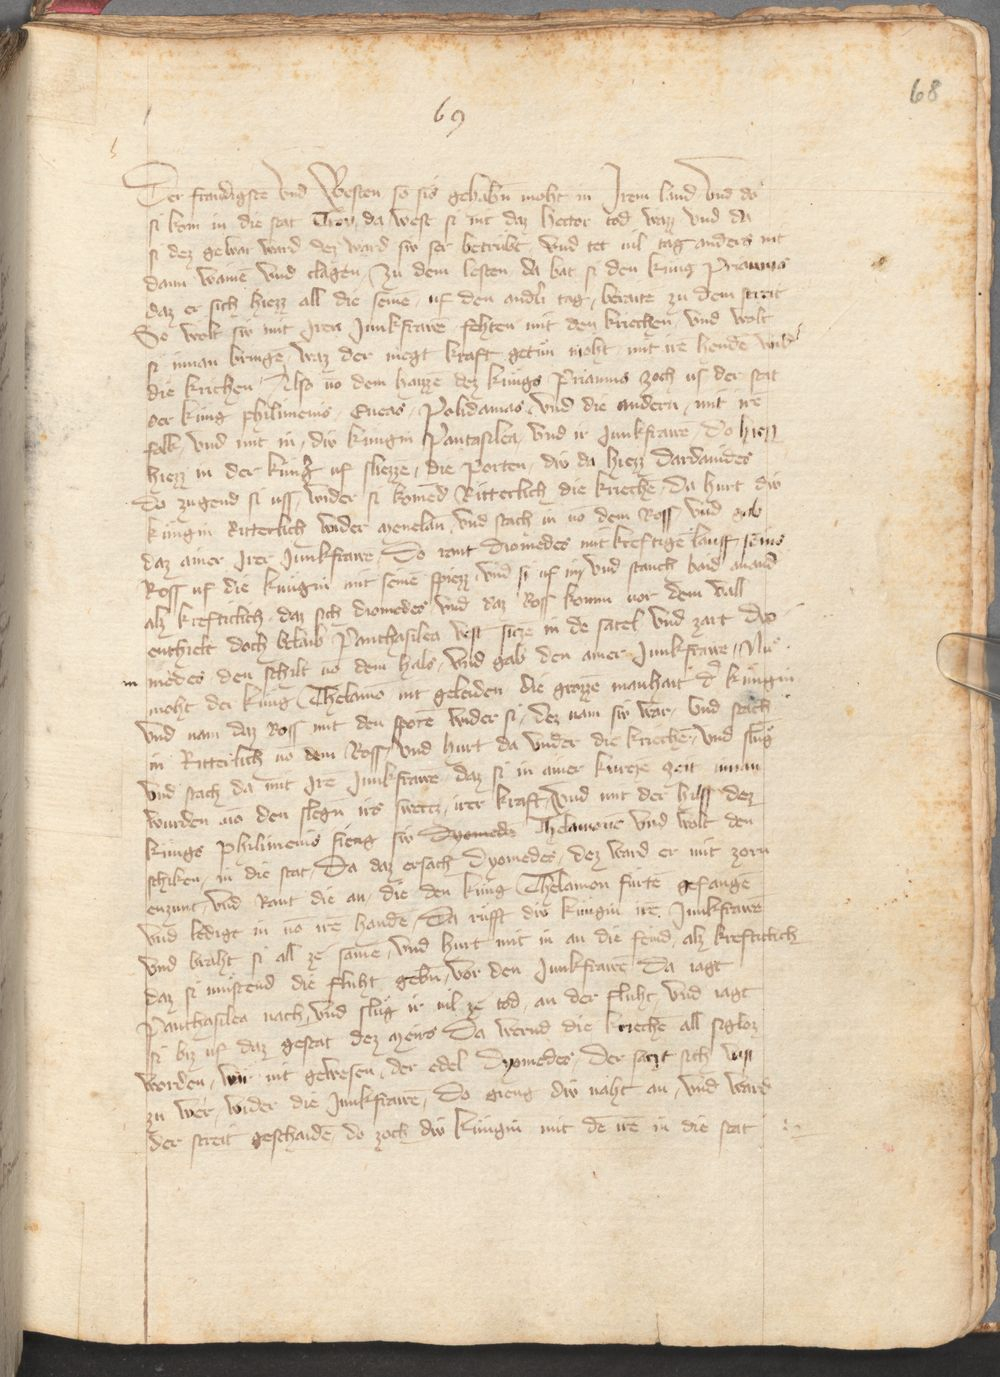 68
69
Der fraidigste vnd Vesten so sis gehabn moht in Jrem land vnd do
si kom in die stat Troy da west si nit daz hector tod waz vnd da
si dez gewar ward dez ward siv ser betrübt vnd tet vil tag anders nit
dann wainē vnd clagen Zu dem lesten da bat si den king Priamus
daz er sich hiezz all die seinē vf den andn tag beraite zu dem streit
So wolt siv mit Jren Junkfrawē fehten mit den kriechen vnd wolt
si innan bringē waz der megt kraft getün moht mit irē hendē wid
die krichen Also vō dem haizzē dez kungs Priamus zoch vs der stat
der king philimenis Eneas Polidamas vnd die andern mit irē
folk vnd mit in div kungin Pantasilea vnd ir junkfrawē Do hiezz
hiezz in der king vf sliezze die Porten div da hiezz Dardanides
Do zugend si uss wider si komēd Ritterlich die kriechē Da hurt div
kungin Ritterlich wider menelau vnd stach in vō dem Ross vnd gab
daz ainer Jrer Junkfrawē Do rant diomedes mit kreftigē lauff seins
Ross vf die kungin mit seinē spiezz vnd si vf in vnd stauch baid anand
alz kreftiklich daz sich diomedes vnd daz Ross komm vor dem vall
enthielt doch belaib Panthasilea vest sitze in dē satel vnd zart dyo
medes den schilt vō dem hals vnd gab den ainer Junkfrawē Nu
moht der king Thelamō nit geleiden die grozze manhait d kungin
vnd nam daz Ross mit den sporē wider si dez nam siv war vnd stach
in Ritterlich vō dem Ross vnd hurt da vnder die kriechē vnd slug
vnd stach da mit Jrē Junkfrawē daz si in ainer kurcze zeit innan
wurden vō den slegn irs swertz irer kraft vnd mit der hilff dez
kungs philimenis fieng siv Dyomede Thelamone vnd wolt den
schiken in die stat Da daz ersach Dyomedes dez ward er mit zorn
enzunt vnd Rant die an die den king Thelamon fürtē gefangē
vnd ledigt in vō irē handē Da rüfft div kungin irē Junkfrawē
vnd braht si all zē samē vnd hurt mit in an die feind alz kreftiklich
daz si müstend die fluht gebn vor den Junkfrawē Da iagt
Panthasilea nach vnd slug ir vil ze tod an der fluht vnd iagt
si biz vf daz gestat dez meirs Da wernd die kriechē all sigloz
worden wer nit gewesen der edel Dyomedes der satzt sich vast
zu wer wider die Junkfrawē Do gieng div naht an vnd ward
der streit geschaidē do zoch div kungin mit dē irē in die stat